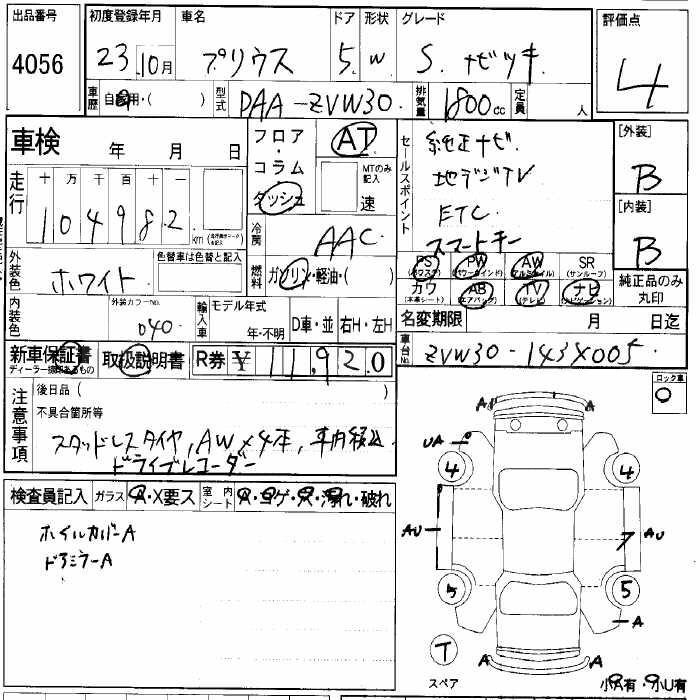 出品番号
4056
初度登録年月 車名 ドア 形状 グレード
23. 10月 プリウス 5. W S. ナビツキ
評価点
4
車歴 自家用・( ) 型式 DAA-ZVW30. 排気量 1800cc 定員 人
車検 年 月 日
フロア・コラム ダッシュ
AT
MTのみ記入
速
セールスポイント
純正ナビ
地デジTV
ETC.
スマートキー
[外装]
B
[内装]
B
走行 十 万 千 百 十 一
104982 km
冷房 AAC.
外装色 ホワイト
色替車は色替と記入
燃料 ガソリン・軽油・( )
PS (パワステ) PW (パワーウインド) AW (アルミホイル) SR (サンルーフ)
カワ (本革シート) AB (エアバッグ) TV (テレビ) ナビ (ナビゲーション)
純正品のみ丸印
内装色
外装カラーNo.
040
輸入車 モデル年式
年・不明 D車・並 右H・左H
名変期限 月 日迄
新車保証書
取扱説明書 R券 ¥ 11,920
車台No. ZVW30-1434005.
ロック車
注意事項
後日品 ( )
不具合箇所等
スタッドレスタイヤ, AW×4本, 車内積込.
ドライブレコーダー
検査員記入 ガラス A・X要ス 室内シート A・コゲ・穴・汚れ・破れ
ホイルカバーA
ドアミラーA
A A
UA
4 4
AU AU
7
5 5
A
T
スペア
A A
小A有・小U有